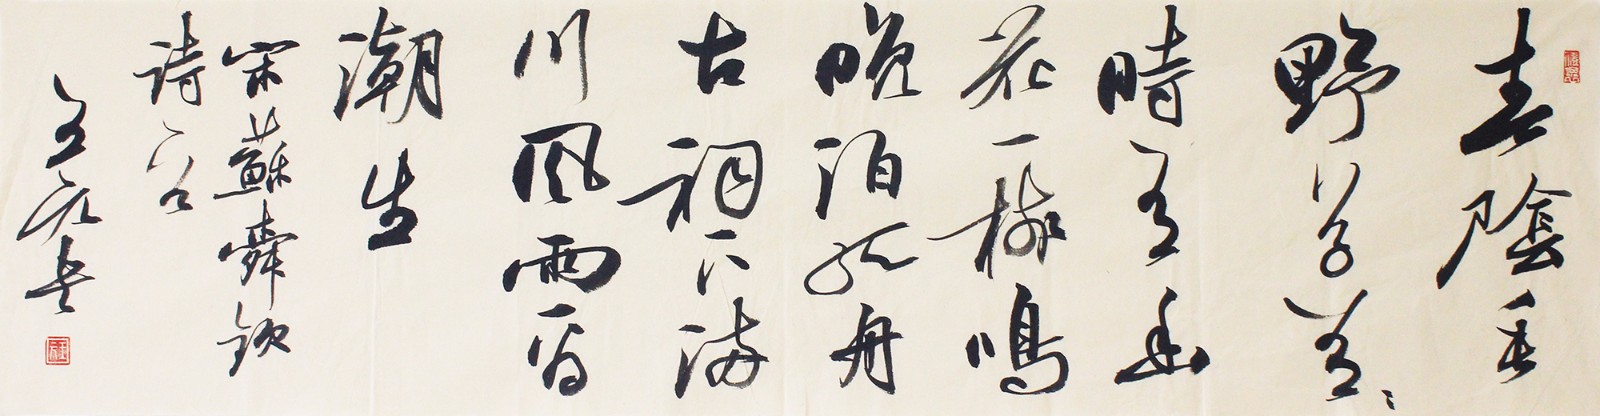 春陰垂
野草青々
時有幽
花一樹鳴
晚泊孤舟
古祠下滿
川風雨看
潮生
宋蘇舜欽
詩